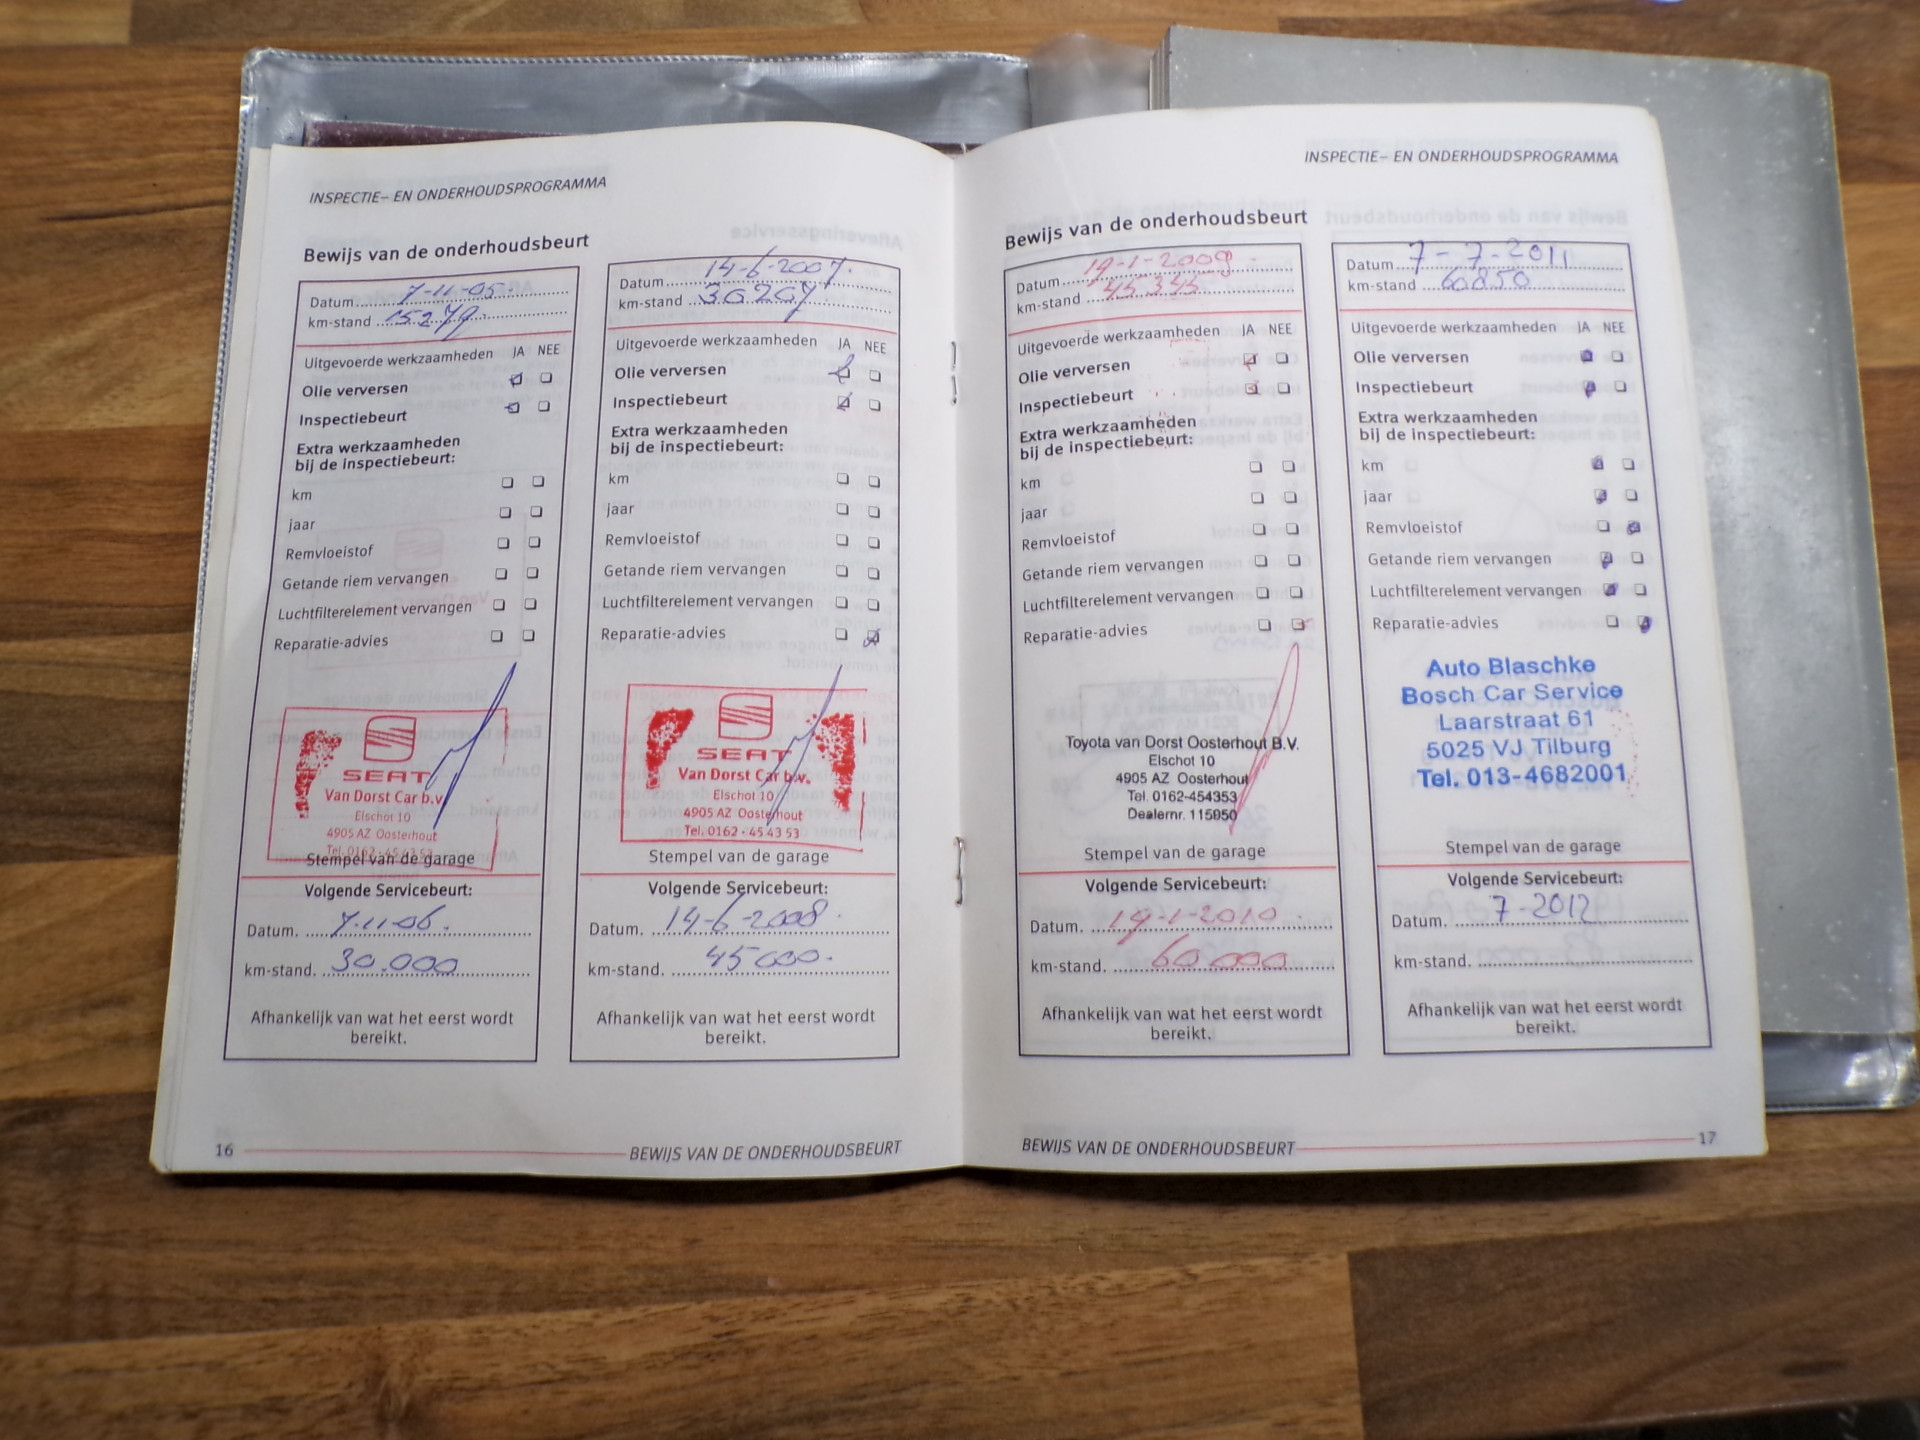 INSPECTIE– EN ONDERHOUDSPROGRAMMA
Bewijs van de onderhoudsbeurt
Datum 7-11-05
km-stand 15279
Uitgevoerde werkzaamheden JA NEE
Olie verversen
Inspectiebeurt
Extra werkzaamheden
bij de inspectiebeurt:
km
jaar
Remvloeistof
Getande riem vervangen
Luchtfilterelement vervangen
Reparatie-advies
SEAT
Van Dorst Car b.v.
Elschot 10
4905 AZ Oosterhout
Tel. 0162-45 43 53
Stempel van de garage
Volgende Servicebeurt:
Datum. 7-11-06.
km-stand. 30.000
Afhankelijk van wat het eerst wordt
bereikt.
Datum 14-6-2007.
km-stand 30207
Uitgevoerde werkzaamheden JA NEE
Olie verversen
Inspectiebeurt
Extra werkzaamheden
bij de inspectiebeurt:
km
jaar
Remvloeistof
Getande riem vervangen
Luchtfilterelement vervangen
Reparatie-advies
SEAT
Van Dorst Car b.v.
Elschot 10
4905 AZ Oosterhout
Tel. 0162 - 45 43 53
Stempel van de garage
Volgende Servicebeurt:
Datum. 14-6-2008.
km-stand. 45000.
Afhankelijk van wat het eerst wordt
bereikt.
16
BEWIJS VAN DE ONDERHOUDSBEURT
INSPECTIE– EN ONDERHOUDSPROGRAMMA
Bewijs van de onderhoudsbeurt
Datum 19-1-2009
km-stand 45345
Uitgevoerde werkzaamheden JA NEE
Olie verversen
Inspectiebeurt
Extra werkzaamheden
bij de inspectiebeurt:
km
jaar
Remvloeistof
Getande riem vervangen
Luchtfilterelement vervangen
Reparatie-advies
Toyota van Dorst Oosterhout B.V.
Elschot 10
4905 AZ Oosterhout
Tel. 0162-454353
Dealernr. 115950
Stempel van de garage
Volgende Servicebeurt:
Datum. 19-1-2010
km-stand. 60000
Afhankelijk van wat het eerst wordt
bereikt.
Datum 7-7-2011
km-stand 60850
Uitgevoerde werkzaamheden JA NEE
Olie verversen
Inspectiebeurt
Extra werkzaamheden
bij de inspectiebeurt:
km
jaar
Remvloeistof
Getande riem vervangen
Luchtfilterelement vervangen
Reparatie-advies
Auto Blaschke
Bosch Car Service
Laarstraat 61
5025 VJ Tilburg
Tel. 013-4682001
Stempel van de garage
Volgende Servicebeurt:
Datum. 7-2012
km-stand.
Afhankelijk van wat het eerst wordt
bereikt.
BEWIJS VAN DE ONDERHOUDSBEURT
17